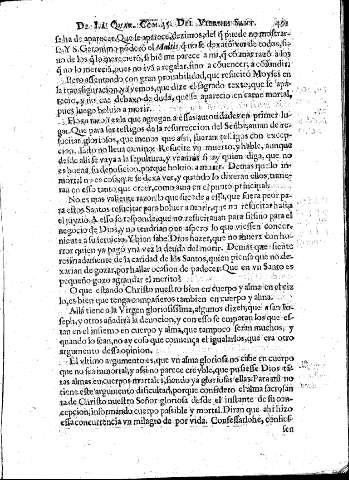 DE LA QUAR. COM. 45. DEL VIERNES SANT. 492
se ha de aparecer. Que se aparece, dezimos, del q̃ puede no mostrar-
se. Y S. Geronimo puso el Multis, q̃ no se dexaró ver de todas, si-
no de los q̃ lo merecieró, si bié me parece a mi, q̃ có mas razó a los
q̃ no lo mereciã, pues no ivã a regalar, sino a cóuencer, a có undir.
Pero assentando con gran probabilidad, que resucitò Moyses en
la transfiguracion, ay
tecio, y no cae debaxo de duda, que se aparecio en carne mortal,
pues luego boluio a morir.
La razon es la que agregan a essas autoridades en primer lu-
gar. Que para ser testigos de la resurreccion del Señor, auian de re-
sucitar gloriosos, que menos que assi, fueran testigos con excep-
cion. Esto no lleua camino. Resucite vn muerto, y hable, aunque
desde alli se vaya a la sepultura, y veamos si ay quien diga, que no
es buena su deposicion, porque boluio a morir. Demas que lo in-
mortal no es cosa que se dexa ver, y quando lo dixeran ellos, tuuie-
ran en esso tanto que creer, como aun en el punto principal.
No es mas valiente razon la que sucede a essa, que fuera peor pa-
ra estos Santos resucitar para boluer a morir, que no resucitar hasta
el juyzio. A esso se responde, que no resucitaron para si, sino para el
negocio de Dios, y no tendrian por aspero lo que viessen conue-
niente a su seruicio. Y bien sabe Dios hazer, que no muera con ho-
rror quien ya pagò vna vez la deuda del morir. Demas que siente
resinadamente de la caridad de los Santos, quien piensa que no de-
xarian de gozar, por hallar ocasion de padecer. Que en vn Santo es
pequeño gozo aguardar el merito?
O que estando Christo nuestro bien en cuerpo y alma en el cie-
lo, es bien que tenga compañeros tambien en cuerpo y alma.
Allà tiene a la Virgen gloriosissima, algunos dizé que a san Io-
seph, y otros añadirà la deuocion, y con esso se empatan los que es-
tan en el infierno en cuerpo y alma, que tampoco seràn muchos, y
quando lo sean, no ay cosa que comença el igualarlos, que era otro
argumento dessa opinion.
El vltimo argumento es, que vn alma gloriosa no cabe en cuerpo
que no sea inmortal, y assi no parece creyble, que pusiesse Dios es-
tas almas en cuerpos mortales, siendo ya gloriosas ellas. Para mi no
tiene este argumento dificultad, porque considero el alma sacrosan
ta de Christo nuestro Señor gloriosa desde el instante de su con-
cepcion, informando cuerpo passible y mortal. Diran que ahi hizo
essa concurrencia vn milagro de por vida. Confessarlohe, confies-
sen